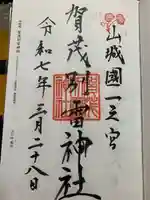 山城國一之宮
賀茂別雷神社
令和七年三月二十八日